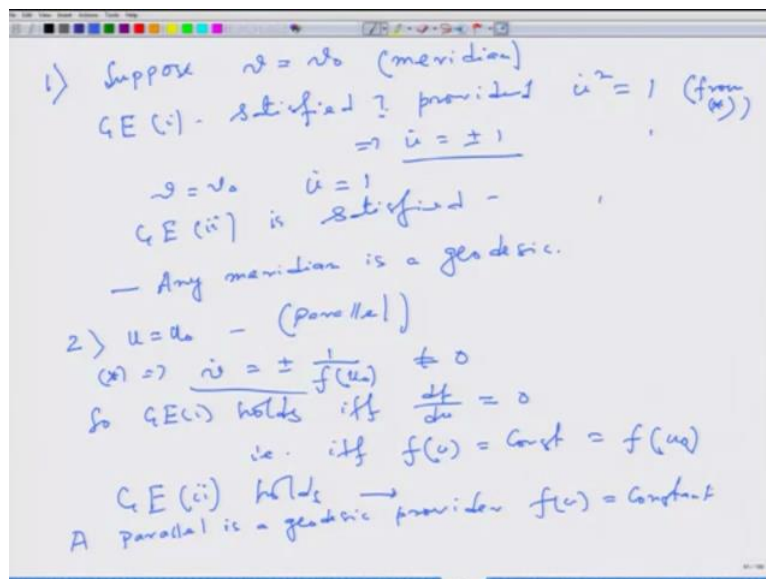 1) Suppose v = v₀ (meridian)
GE (i) - satisfied ? provided u̇² = 1 (from (*))
=> u̇ = ± 1
v = v₀ u̇ = 1
GE (ii) is satisfied -
— Any meridian is a geodesic.
2) u = u₀ - (parallel)
(*) => v̇ = ± 1/f(u₀) ≠ 0
So GE(i) holds iff df/du = 0
i.e. iff f(u) = Const = f(u₀)
GE (ii) holds →
A parallel is a geodesic provides f(u) = Constant